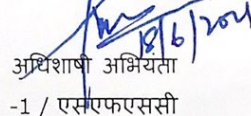 18/6/202
अधिशाषी अभियंता
-1 / एसएफएससी